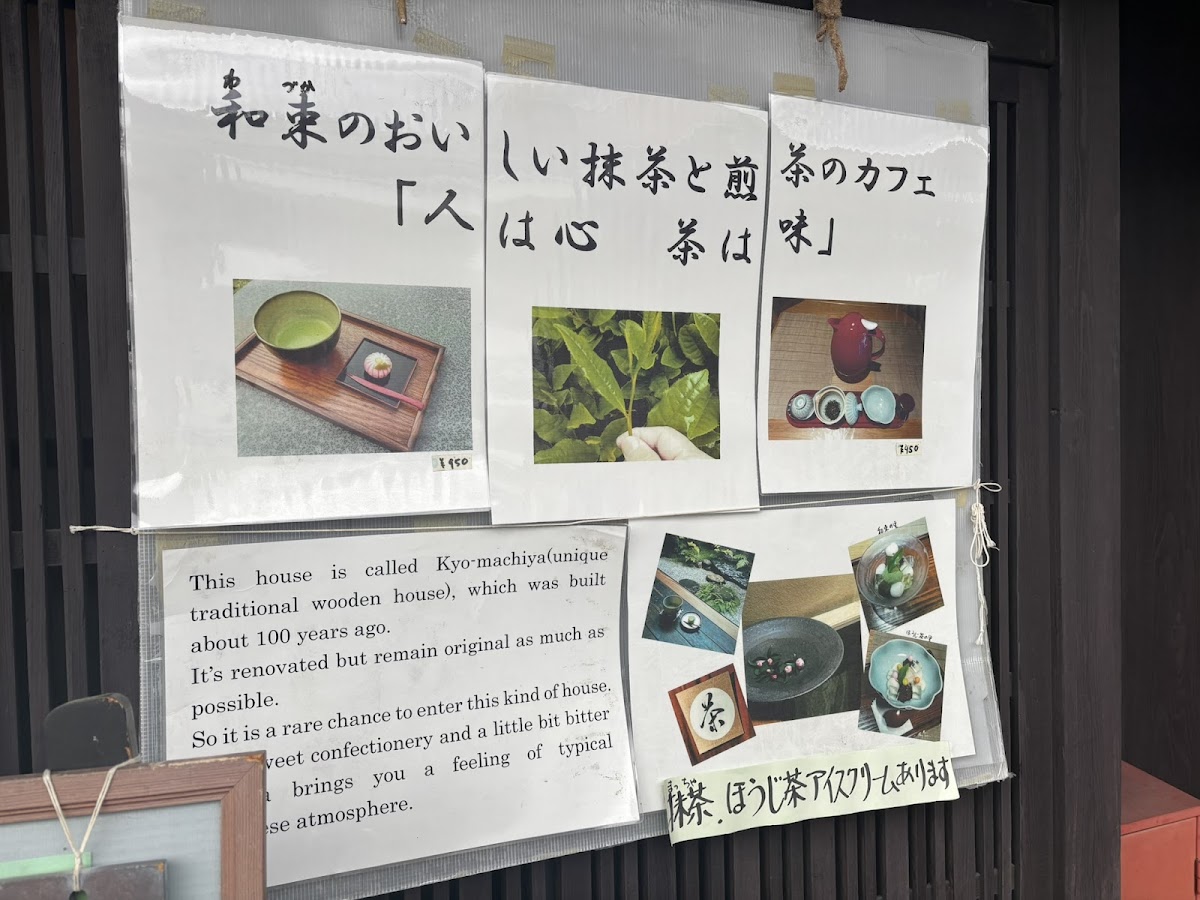 わ づか
和束のおいしい抹茶と煎茶のカフェ
「人は心 茶は味」
¥950
¥450
This house is called Kyo-machiya(unique
traditional wooden house), which was built
about 100 years ago.
It's renovated but remain original as much as
possible.
So it is a rare chance to enter this kind of house.
weet confectionery and a little bit bitter
brings you a feeling of typical
ese atmosphere.
茶
まっちゃ
抹茶.ほうじ茶アイスクリームあります